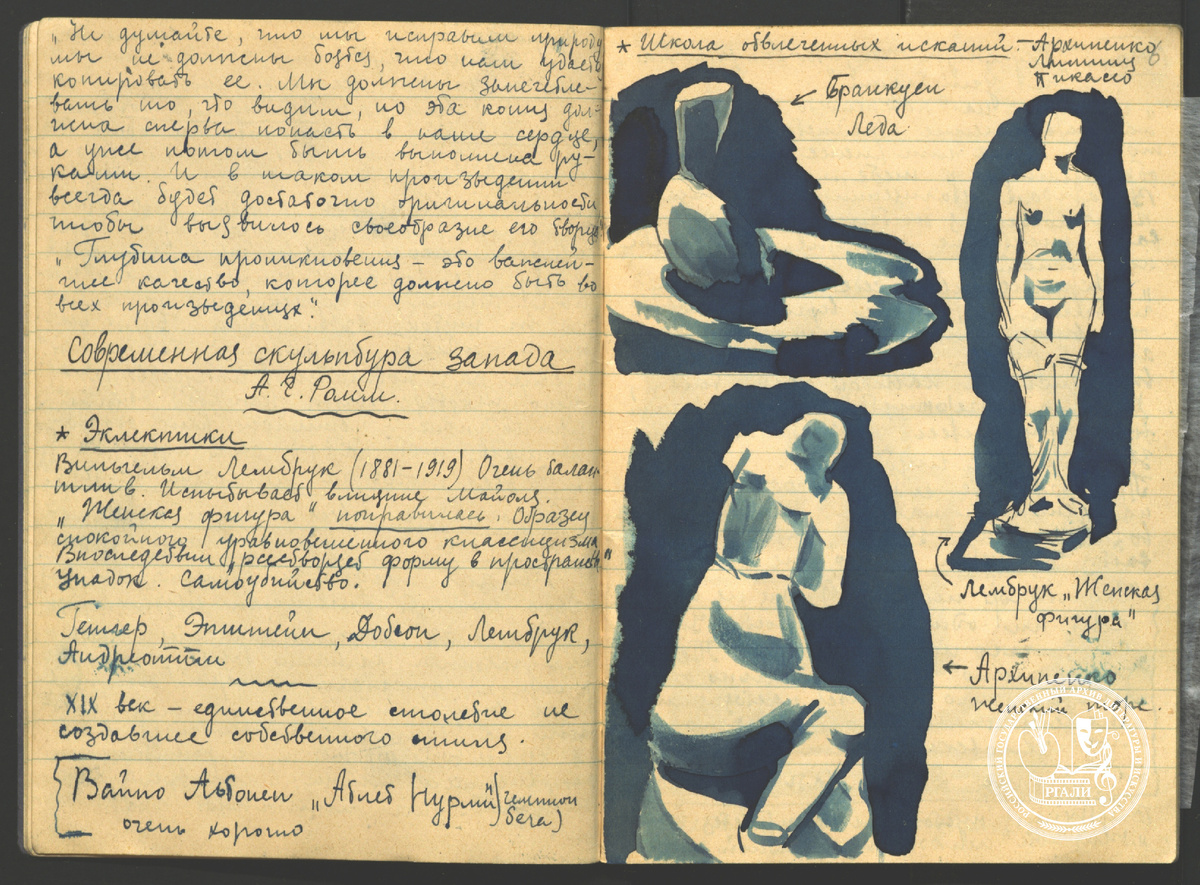 „Не думайте, что мы исправим природу
мы не должны боятся, что нам удасть
копировать ее. Мы должны запечатле-
вать то, что видим, но эта копия дол-
жна сперва попасть в наше сердце,
а уже потом быть выполнена ру-
ками. И в таком произведении
всегда будет достаточно оригинальности
чтобы выявилось своеобразие его творца"
„Глубина проникновения – это важней-
шее качество, которое должно быть во
всех произведениях".
Современная скульптура запада
А. Г. Ромм.
* Эклектики
Вильгельм Лембрук (1881–1919) Очень талан-
тлив. Испытывает влияние Майоля.
„Женская фигура" понравилась. Образец
спокойного уравновешенного классицизма
Впоследствии „растворяет форму в пространств"
Упадок. Самоубийство.
Гетгер, Эпштейн, Добсон, Лембрук,
Андреотти
XIX век – единственное столетие не
создавшее собственного стиля.
Вайно Аьтонен „Атлет (Нурми") чемпион
бега)
очень хорошо
* Школа отвлеченных исканий. – Архипенко
Липшиц
Пикассо
6
← Бранкуси
Леда
Лембрук „Женская
фигура"
← Архипенко
Женский торс.
РОССИЙСКИЙ ГОСУДАРСТВЕННЫЙ АРХИВ ЛИТЕРАТУРЫ И ИСКУССТВА
РГАЛИ